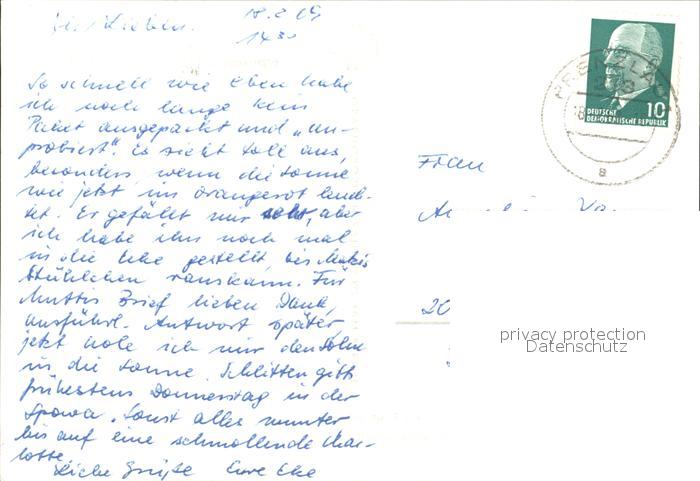 Ihr Lieben. 18.2.69
14³⁰
So schnell wie eben habe
ich noch lange kein
Paket ausgepackt und „an-
probiert". Es sieht toll aus,
besonders wenn die Sonne
wie jetzt ins orangerot leuch-
tet. Er gefällt mir sehr, aber
ich habe ihn noch mal
in die Ecke gestellt, bis
Stühlchen rauskann. Für
Muttis Brief lieben Dank,
ausführl. Antwort später,
jetzt hole ich nur den Sohn
in die Sonne. Schlitten gibts
frühestens Donnerstag in der
Spowa. Sonst alles munter
bis auf eine schmollende Char-
lotte.
Liebe Grüße Eure Eke
PRENZLAU
213
18
a
10
DEUTSCHE
DEMOKRATISCHE REPUBLIK
Frau
20
privacy protection
Datenschutz